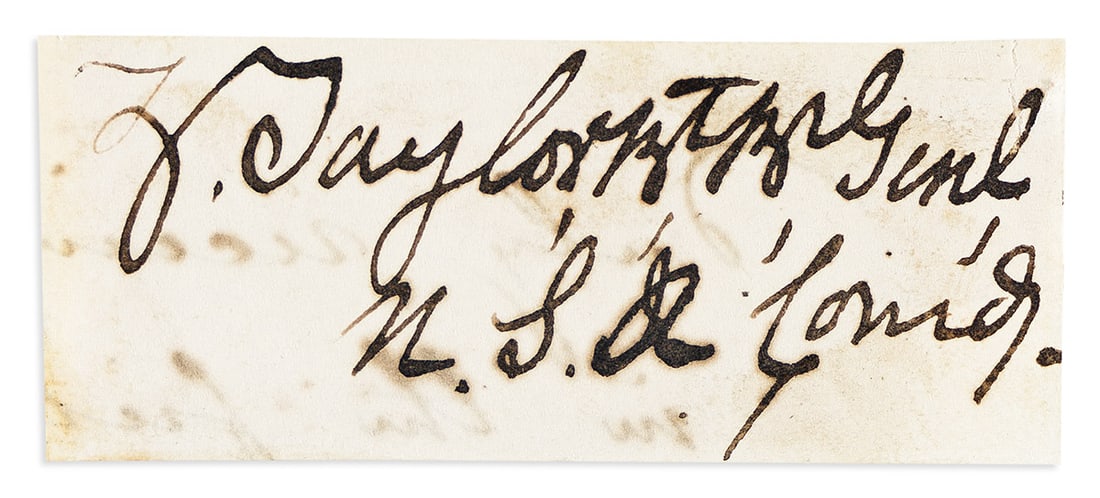 Z. Taylor Bt Br Genl
U. S. A. Com'd.